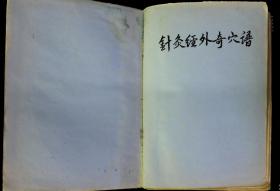 針灸経外奇穴譜